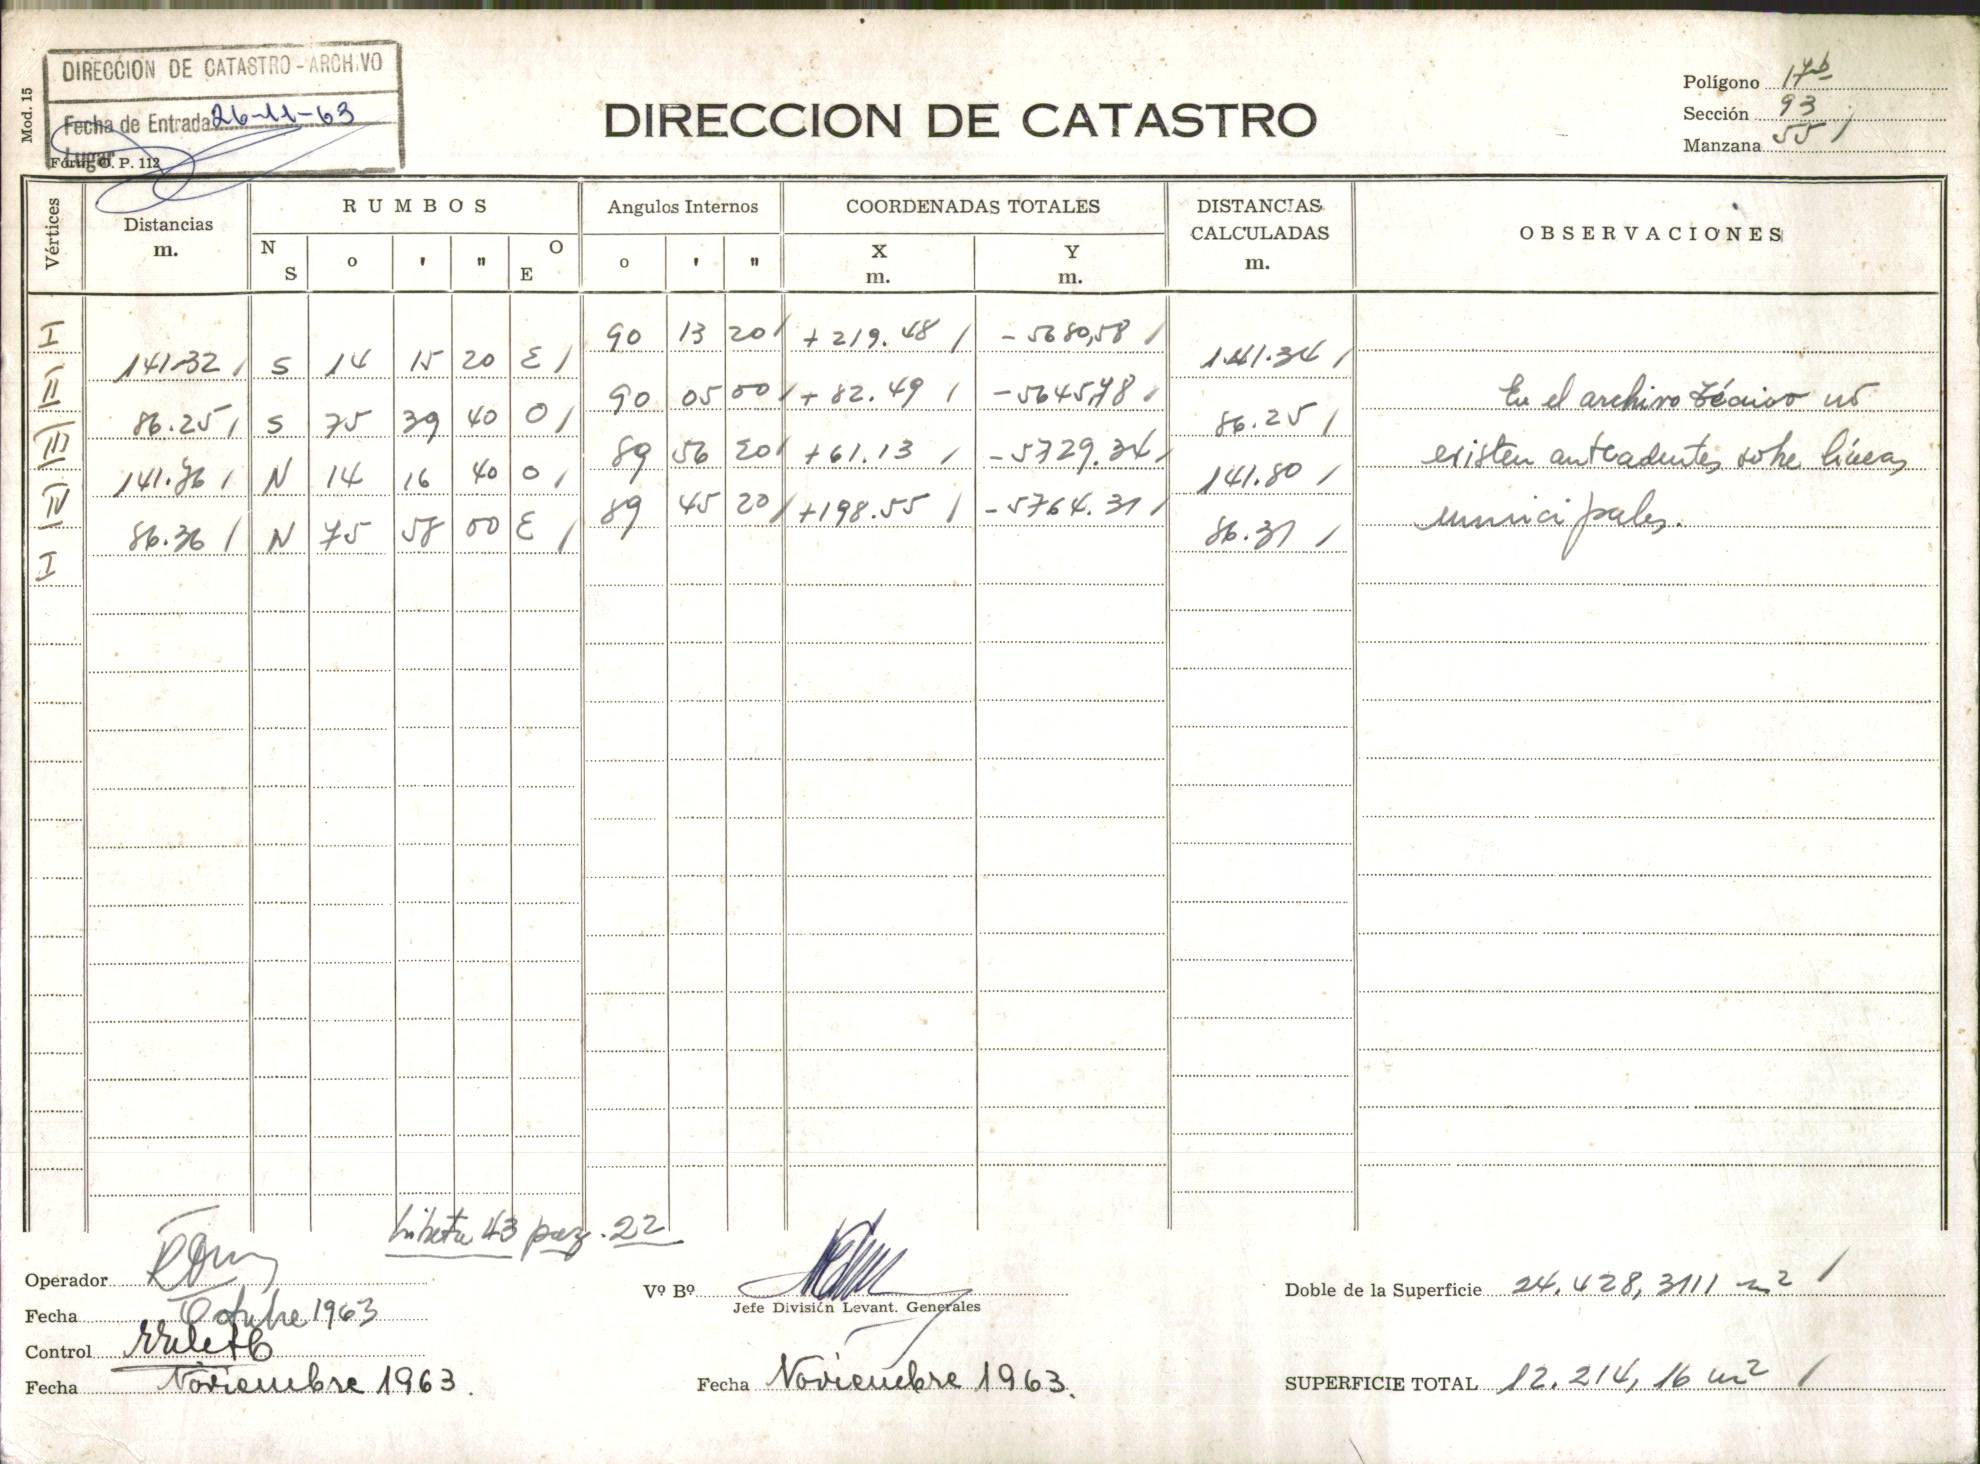 DIRECCION DE CATASTRO - ARCHIVO
Fecha de Entrada 26-11-63
Lugar
Mod. 15
Form. O. P. 112
DIRECCION DE CATASTRO
Polígono 17b
Sección 93
Manzana 55
Vértices
Distancias
m.
RUMBOS
N S o ' " O E
Angulos Internos
o ' "
COORDENADAS TOTALES
X m. Y m.
DISTANCIAS CALCULADAS m.
OBSERVACIONES
I 90 13 20 + 219.48 - 5680,58
141.32 S 14 15 20 E 141.34
II 90 05 00 + 82.49 - 5645,78
86.25 S 75 39 40 O 86.25
III 89 56 20 + 61.13 - 5729.34
141.86 N 14 16 40 O 141.80
IV 89 45 20 + 198.55 - 5764.31
86.36 N 75 58 00 E 86.31
I
En el archivo técnico no
existen antecadentes sobre líneas
municipales.
Libreta 43 pag. 22
Operador
Fecha Octubre 1963
Control
Fecha Noviembre 1963.
Vº Bº
Jefe División Levant. Generales
Fecha Noviembre 1963.
Doble de la Superficie 24.428,3111 m2
SUPERFICIE TOTAL 12.214,16 m2